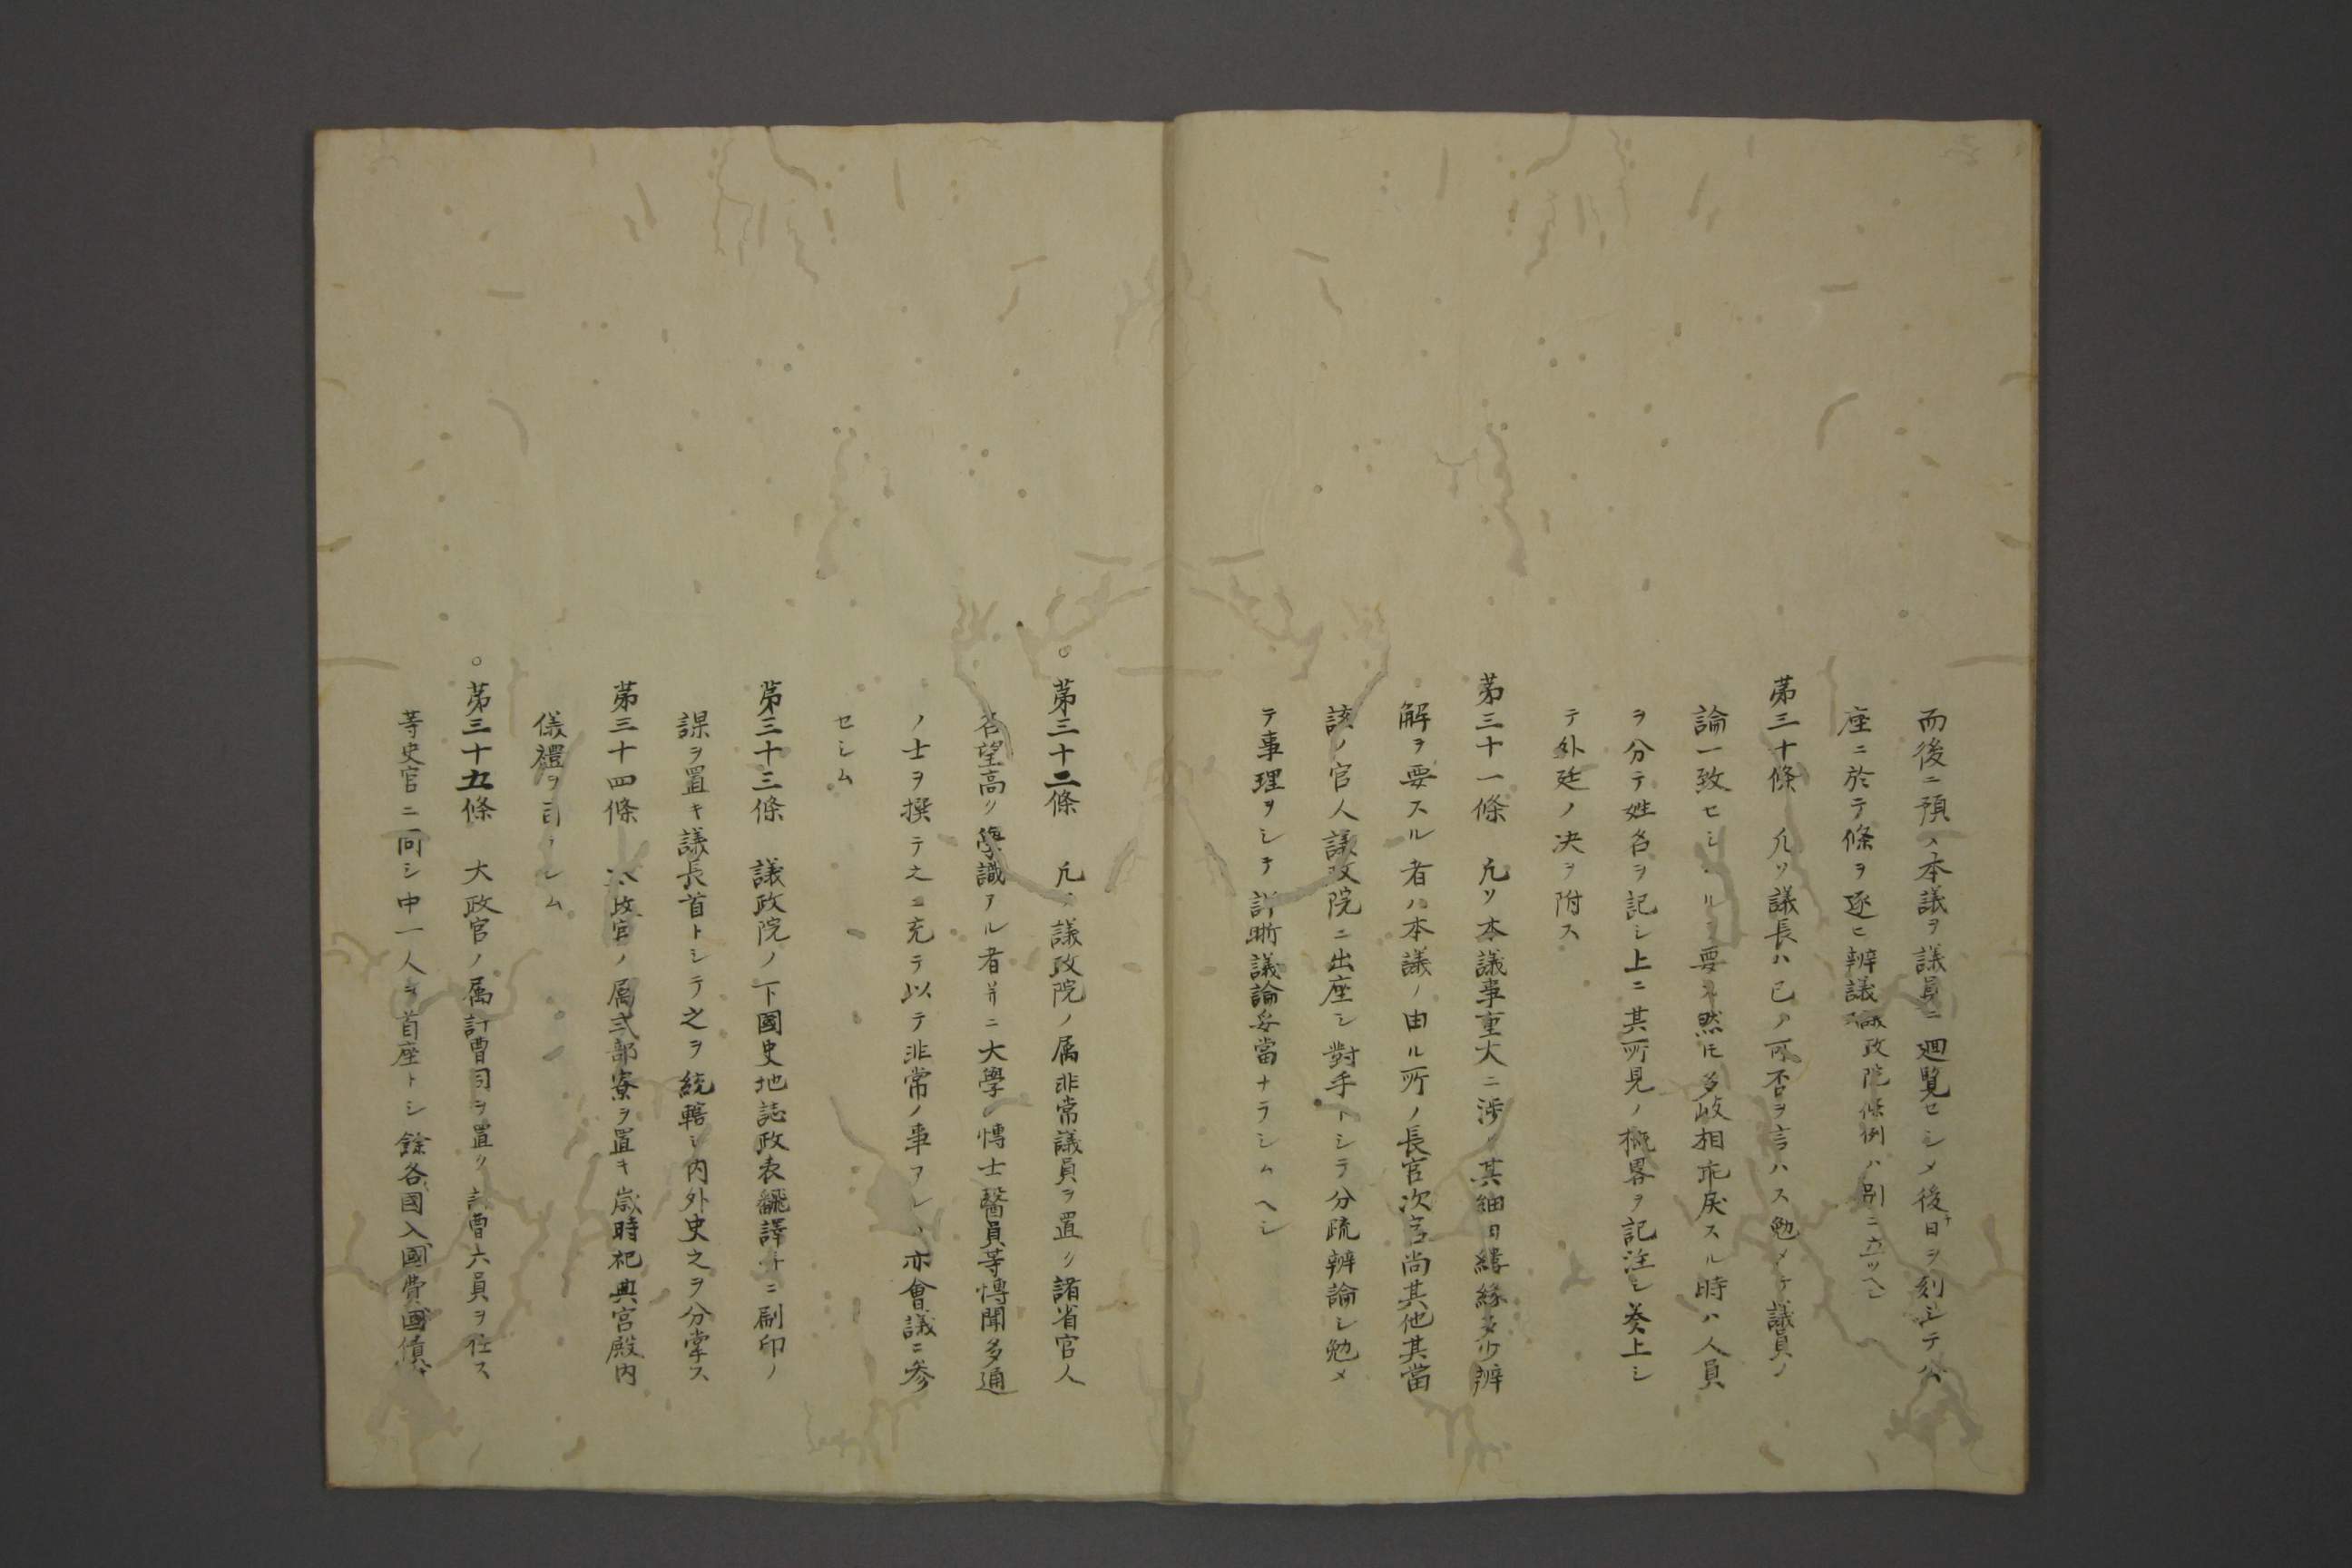 而後ニ預メ本議ヲ議員ニ廻覧セシメ後日ヲ刻シテ公
座ニ於テ條ヲ逐ヒ辨議 議政院條例ハ別ニ立ツヘシ
第三十條　凡ソ議長ハ己ノ可否ヲ言ハス勉メテ議員ノ
論一致セシ ルヲ要ス然𪜈多岐相乖戻スル時ハ人員
ヲ分テ姓名ヲ記シ上ニ其所見ノ概畧ヲ記注シ奏上シ
テ外廷ノ决ヲ附ス
第三十一條　凡ソ本議事重大ニ渉リ其細目縷縁多少辨
解ヲ要スル者ハ本議ノ由ル所ノ長官次官尚其他其當
該ノ官人議政院ニ出座シ對手トシテ分疏辨論シ勉メ
テ事理ヲシテ 晰議論妥當ナラシムヘシ
○第三十二條　凡ソ議政院ノ属非常議員ヲ置ク諸省官人
名望高ク學識アル者并ニ大學ノ博士醫員等博聞多通
ノ士ヲ撰テ之ニ充テ以テ非常ノ事アレハ亦會議ニ参
セシム
第三十三條　議政院ノ下國史地誌政表飜譯并ニ刷印ノ
課ヲ置キ議長首トシテ之ヲ統轄シ内外史之ヲ分掌ス
第三十四條　太政官ノ属式部寮ヲ置キ歳時祀典宮殿内
儀禮ヲ司ラシム
○第三十五條　大政官ノ属計曹司ヲ置ク計曹六員ヲ任ス
等史官ニ同シ中一人ヲ首座トシ餘各國入國費國債